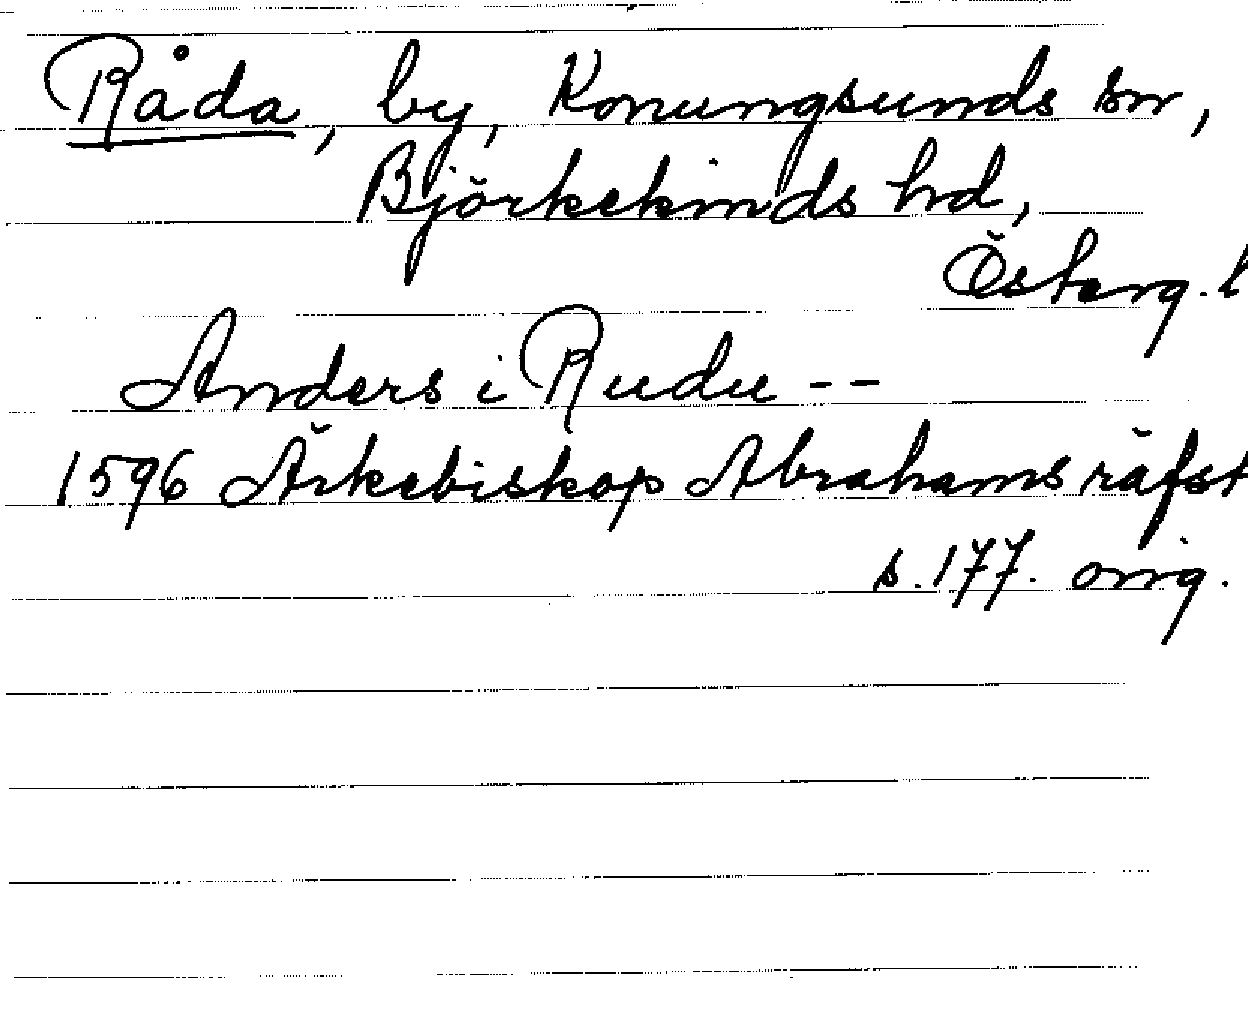 Råda, by, Konungsunds sn,
Björkekinds hd,
Österg. l
Anders i Rudu --
1596 Ärkebiskop Abrahams räfst
s. 177. orig.